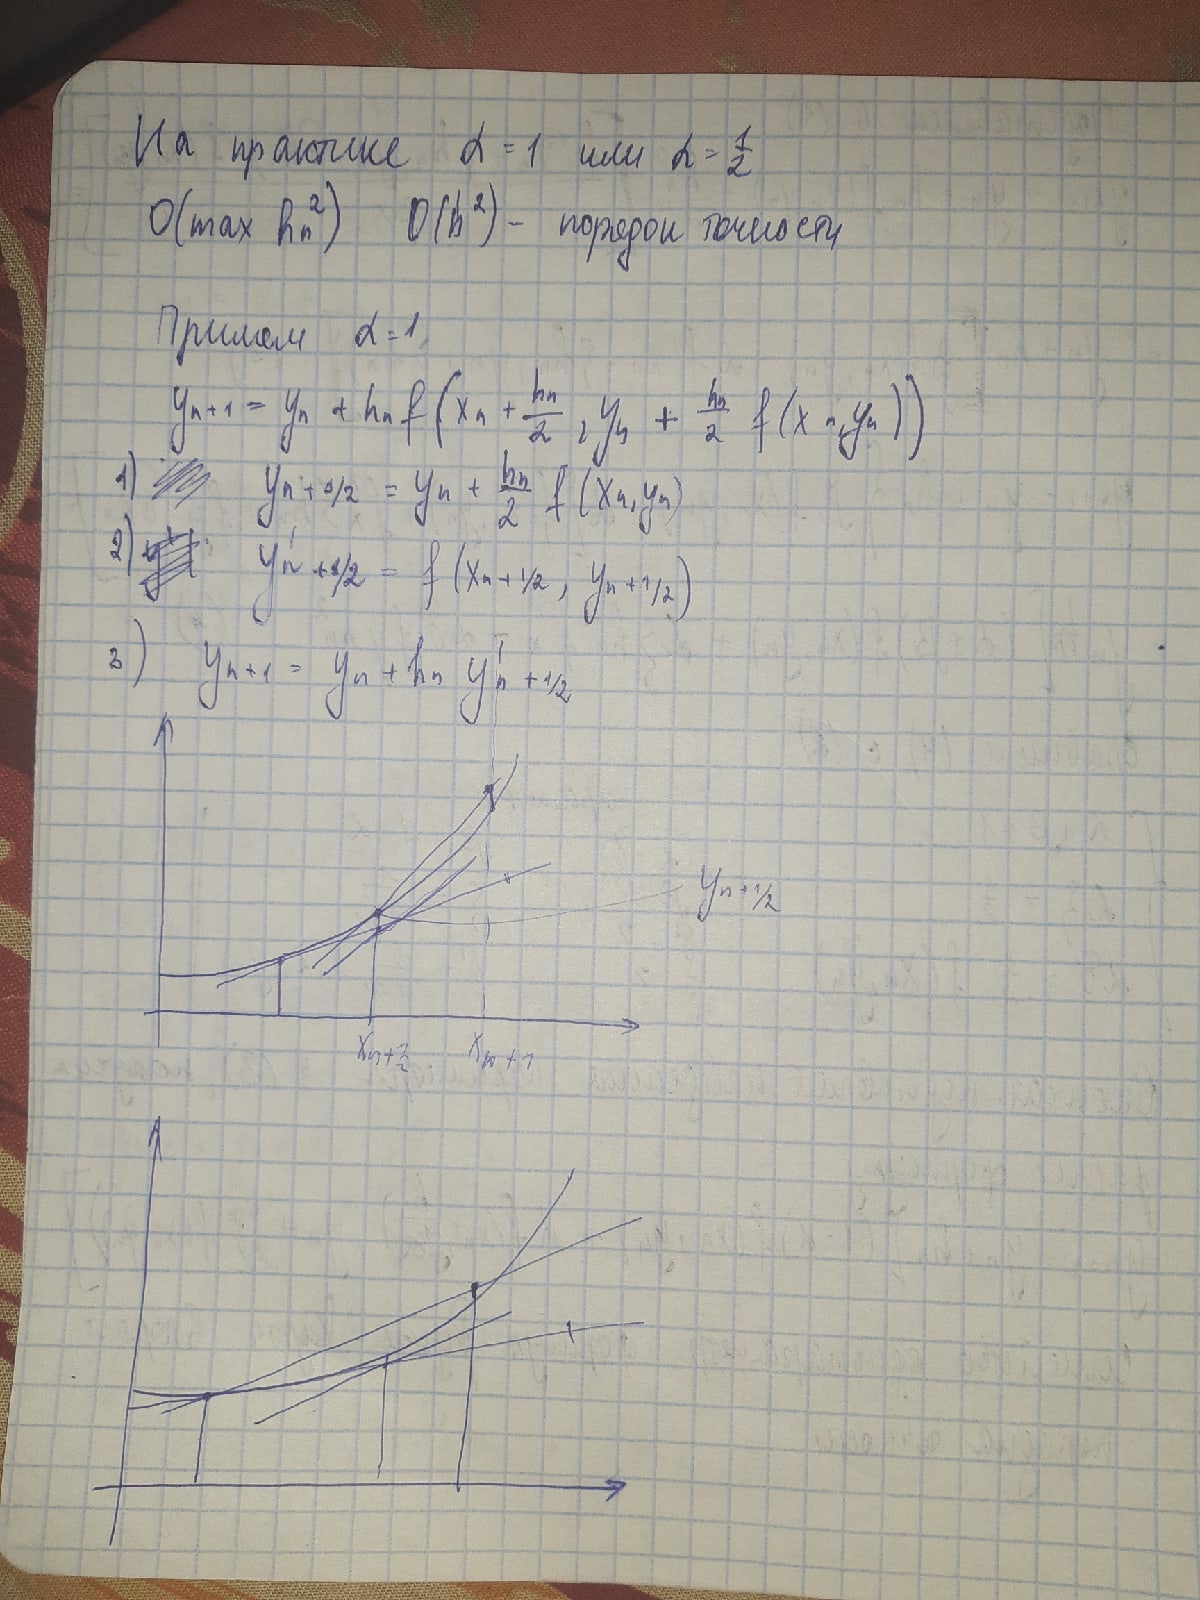 На практике α = 1 или α = 1/2
O(max hₙ²) O(h²) - порядок точности
Примем α = 1
yₙ₊₁ = yₙ + hₙ f(xₙ + hₙ/2, yₙ + hₙ/2 f(xₙ, yₙ))
1) yₙ₊₁/₂ = yₙ + hₙ/2 f(xₙ, yₙ)
2) y'ₙ₊₁/₂ = f(xₙ₊₁/₂, yₙ₊₁/₂)
3) yₙ₊₁ = yₙ + hₙ y'ₙ₊₁/₂
yₙ₊₁/₂
xₙ₊₁/₂ xₙ₊₁